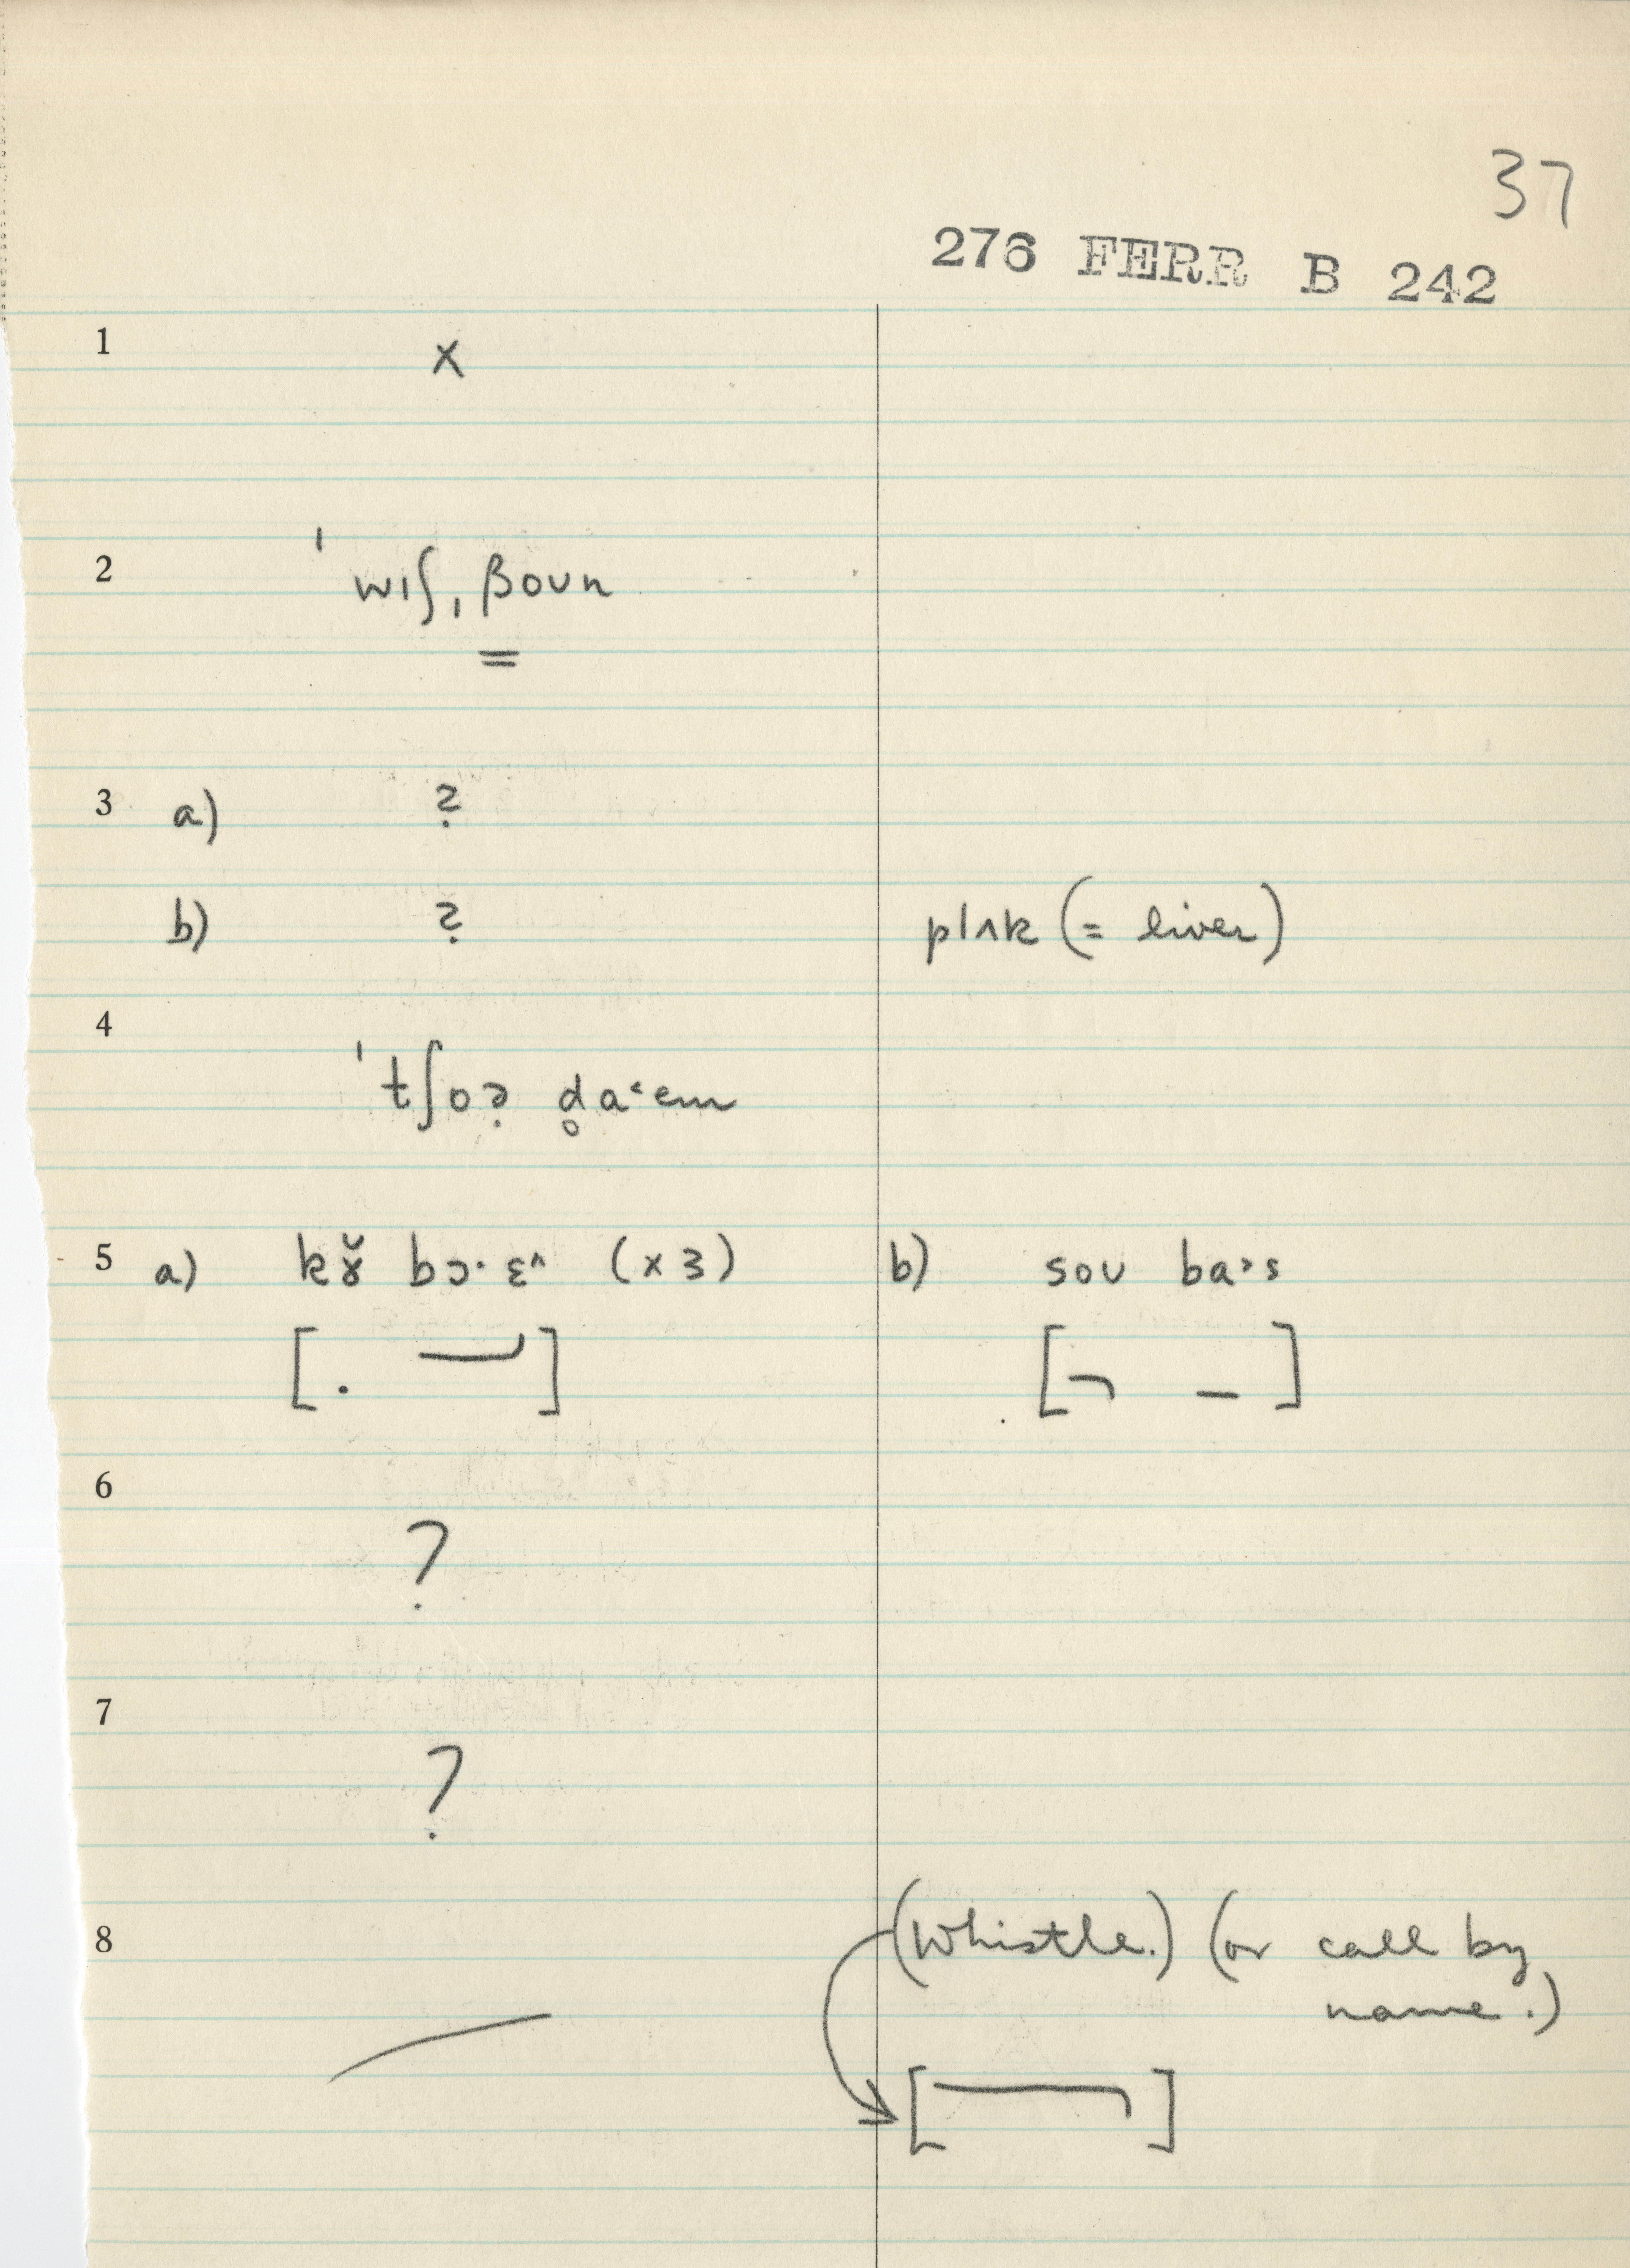 37
276 FERR B 242
1 x
2 ˈwɪʃˌβoʊn
=
3 a) ʔ̣
b) ʔ̣ plʌk (= liver)
4 ˈtʃoʔ̣ d̥a˂em
5 a) kɤ̆ bɔ· ɛ^ (x3) b) soʊ ba˃s
6 ?
7 ?
8 (Whistle.) (or call by
name.)